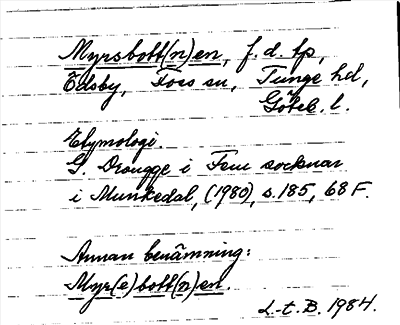 Myrsbott(n)en, f.d. tp,
Ödsby, Foss sn, Tunge hd,
Göteb. l.
Etymologi.
G. Drougge i Fem socknar
i Munkedal, (1980), s. 185, 68 F.
Annan benämning:
Myr(e)bott(n)en.
L-t. B. 1984.